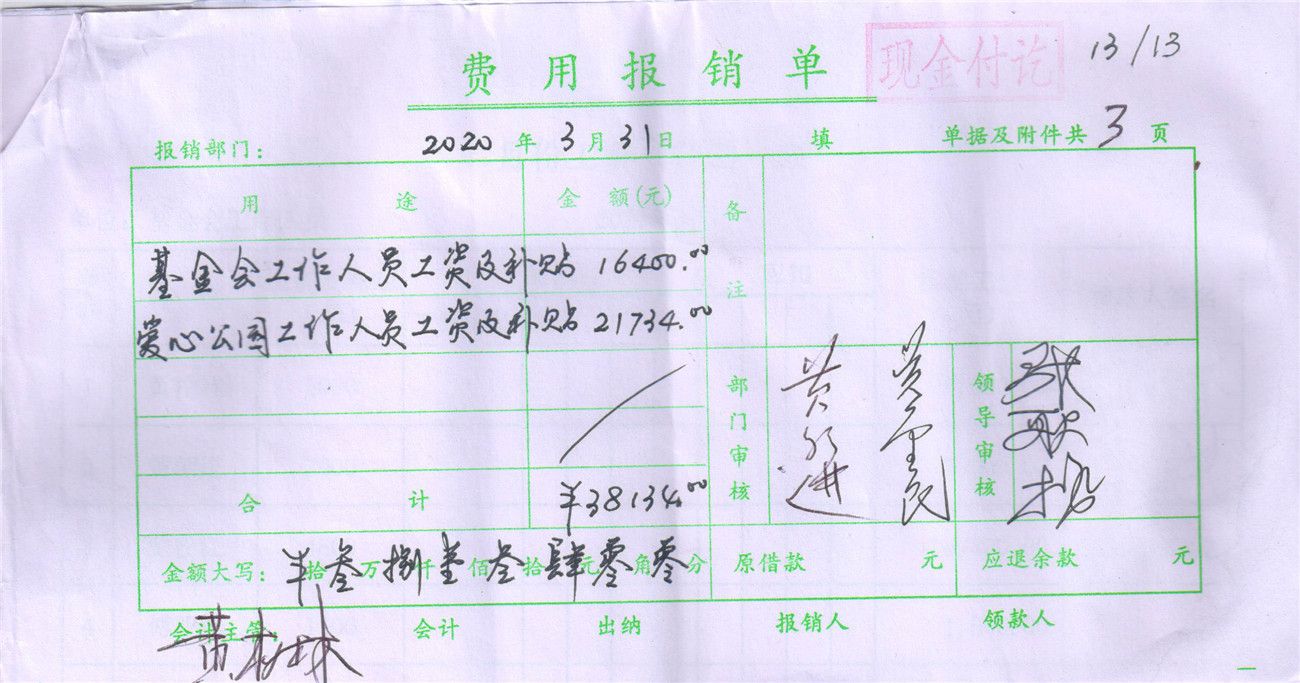 费用报销单
现金付讫
13/13
报销部门: 2020 年 3 月 31 日 填 单据及附件共 3 页
用途 金额(元) 备注
基金会工作人员工资及补贴 16400.00
爱心公园工作人员工资及补贴 21734.00
部门审核 领导审核
合计 ¥38134.00
金额大写: ¥拾叁万捌仟壹佰叁拾肆元零角零分 原借款 元 应退余款 元
会计主管: 会计 出纳 报销人 领款人